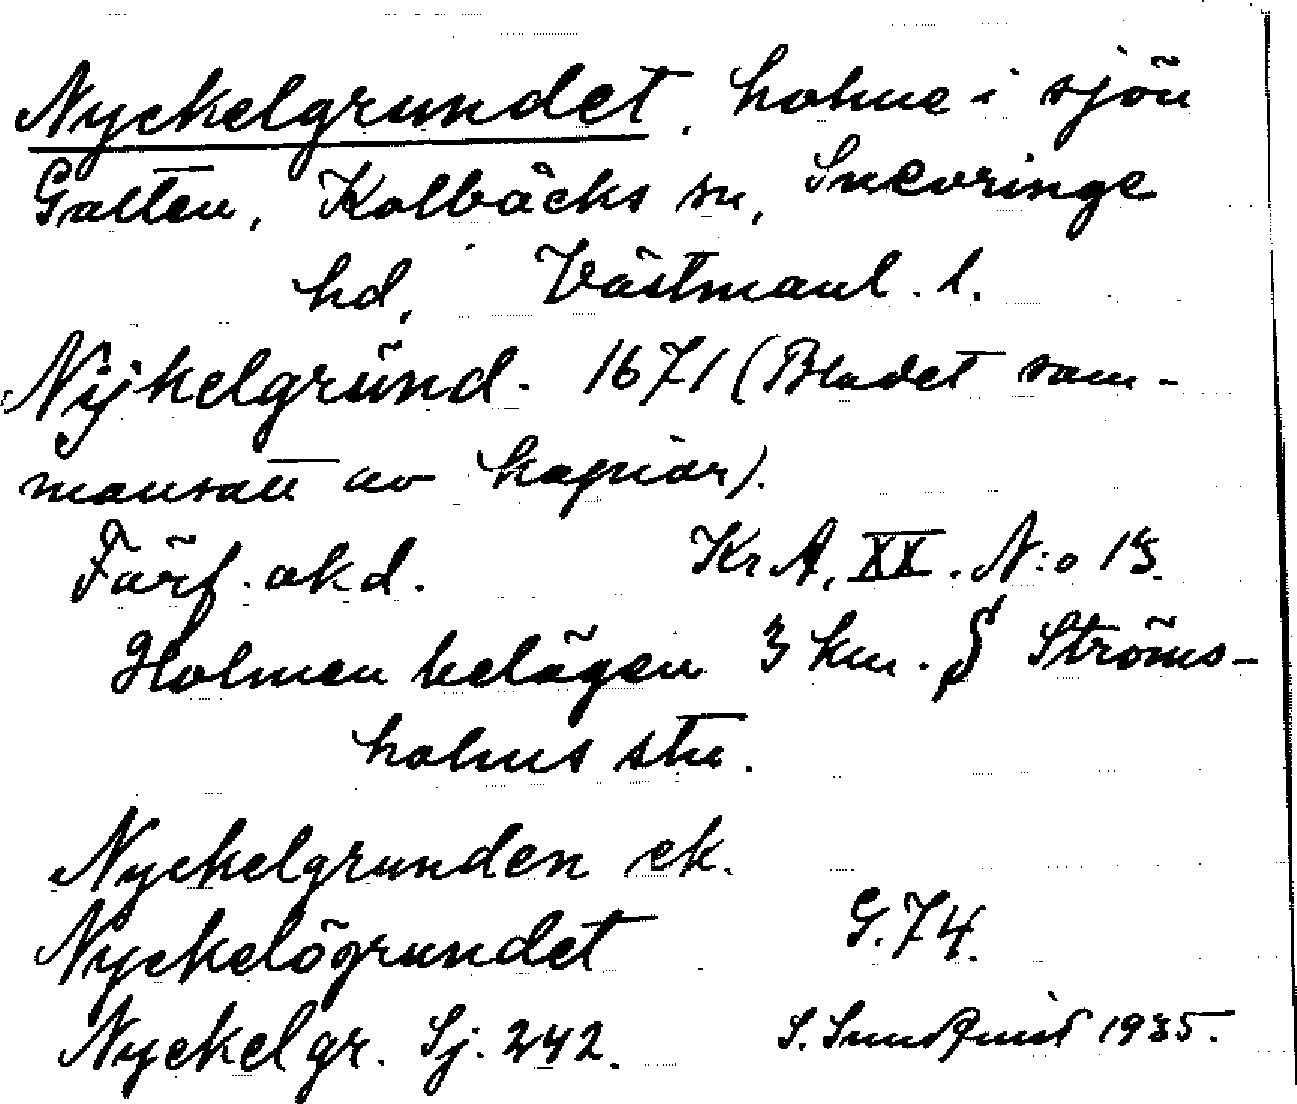 Nyckelgrundet, holme i sjön
Galten, Kolbäcks sn, Snevringe
hd, Västmanl. l.
Nÿkelgrŭnd. 1671 (Bladet sam-
mansatt av kopior).
Förf. okd. KrA, XX. N:o 13.
Holmen belägen 3 km. S Ströms-
holms stn.
Nyckelgrunden ek.
Nyckelögrundet G. 74.
Nyckelgr. Sj. 242. S. Sundqvist 1935.